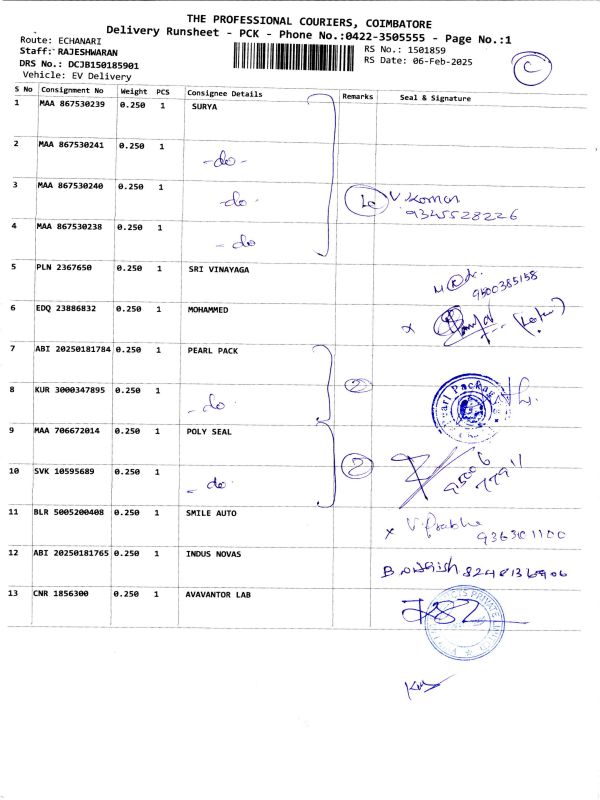 THE PROFESSIONAL COURIERS, COIMBATORE
Delivery Runsheet - PCK - Phone No.:0422-3505555 - Page No.:1
Route: ECHANARI
Staff: RAJESHWARAN
DRS No.: DCJB150185901
Vehicle: EV Delivery
RS No.: 1501859
RS Date: 06-Feb-2025
C
S No Consignment No Weight PCS Consignee Details Remarks Seal & Signature
1 MAA 867530239 0.250 1 SURYA
2 MAA 867530241 0.250 1 -do-
3 MAA 867530240 0.250 1 -do-
V. Koman
9345528226
4 MAA 867530238 0.250 1 -do
5 PLN 2367650 0.250 1 SRI VINAYAGA
9500385158
6 EDQ 23886832 0.250 1 MOHAMMED x
7 ABI 20250181784 0.250 1 PEARL PACK
8 KUR 3000347895 0.250 1 -do- 2
Pearl Packag
9 MAA 706672014 0.250 1 POLY SEAL
10 SVK 10595689 0.250 1 -do- 2
95006
77911
11 BLR 5005200408 0.250 1 SMILE AUTO x V. Prabhu
9363011100
12 ABI 20250181765 0.250 1 INDUS NOVAS
8248136906
13 CNR 1856300 0.250 1 AVAVANTOR LAB
PRIVATE LIMITED